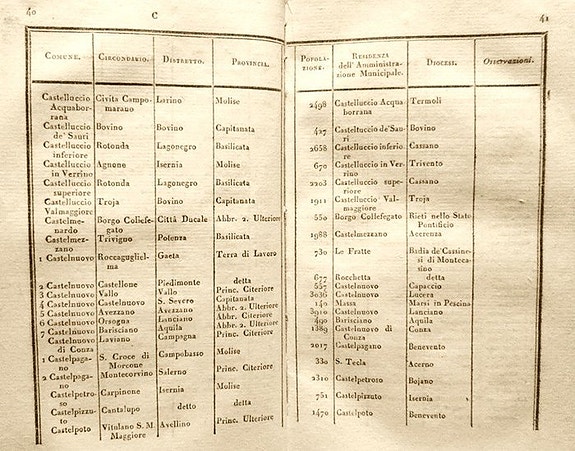 40 C
COMUNE. CIRCONDARIO. DISTRETTO. PROVINCIA.
Castelluccio Civita Campo- Larino Molise
Acquabor- marano
rana
Castelluccio Bovino Bovino Capitanata
de' Sauri
Castelluccio Rotonda Lagonegro Basilicata
inferiore
Castelluccio Agnone Isernia Molise
in Verrino
Castelluccio Rotonda Lagonegro Basilicata
superiore
Castelluccio Troja Bovino Capitanata
Valmaggiore
Castelme- Borgo Collefe- Città Ducale Abbr. 2. Ulteriore
nardo gato
Castelmez- Trivigno Potenza Basilicata
zano
1 Castelnuovo Roccagugliel- Gaeta Terra di Lavoro
ma
2 Castelnuovo Castellone Piedimonte detta
3 Castelnuovo Vallo Vallo Princ. Citeriore
4 Castelnuovo Castelnuovo S. Severo Capitanata
5 Castelnuovo Avezzano Avezzano Abbr. 2. Ulteriore
6 Castelnuovo Orsogna Lanciano Abbr. Citeriore
7 Castelnuovo Barisciano Aquila Abbr. 2. Ulteriore
Castelnuovo Laviano Campagna Princ. Citeriore
di Conza
1 Castelpaga- S. Croce di Campobasso Molise
no Morcone
2 Castelpaga- Montecorvino Salerno Princ. Citeriore
no
Castelpetro- Carpinone Isernia Molise
so
Castelpizzu- Cantalupo detto detto
to
Castelpoto Vitulano S. M. Avellino Princ. Ulteriore
Maggiore
41
POPOLA- RESIDENZA DIOCESI. Osservazioni.
ZIONE. dell'Amministra-
zione Municipale.
2498 Castelluccio Acqua- Termoli
borrana
427 Castelluccio de'Sau- Bovino
ri
2658 Castelluccio inferio- Cassano
re
670 Castelluccio in Ver- Trivento
rino
2203 Castelluccio supe- Cassano
riore
1911 Castelluccio Val- Troja
maggiore
550 Borgo Collefegato Rieti nello Stato
Pontificio
1988 Castelmezzano Acerenza
730 Le Fratte Badia de'Cassine-
si di Monteca-
sino
677 Rocchetta detta
557 Castelnuovo Capaccio
3036 Castelnuovo Lucera
140 Massa Marsi in Pescina
3910 Castelnuovo Lanciano
490 Barisciano Aquila
1389 Castelnuovo di Conza
Conza
2017 Castelpagano Benevento
330 S. Tecla Acerno
2310 Castelpetroso Bojano
751 Castelpizzuto Isernia
1470 Castelpoto Benevento